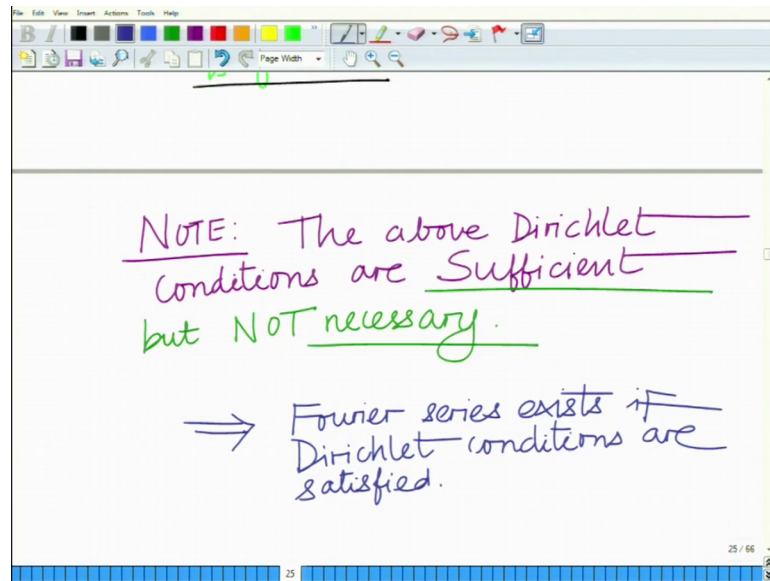 File Edit View Insert Actions Tools Help
B I
Page Width
NOTE: The above Dirichlet
conditions are Sufficient
but NOT necessary.
⇒ Fourier series exists if
Dirichlet conditions are
satisfied.
25 / 66
25